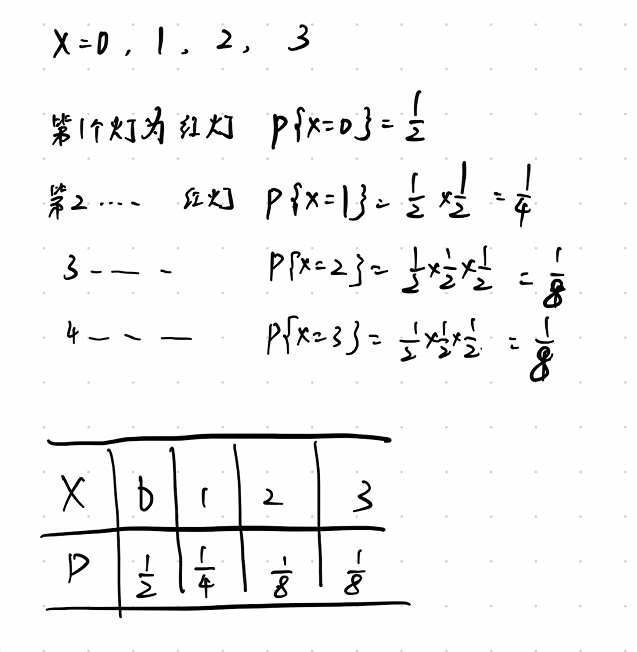 X=0, 1, 2, 3
第1个灯为 红灯 P{X=0}=1/2
第2···· 红灯 P{X=1}=1/2×1/2=1/4
3 - — - P{X=2}=1/2×1/2×1/2=1/8
4 — - — P{X=3}=1/2×1/2×1/2=1/8
X 0 1 2 3
P 1/2 1/4 1/8 1/8